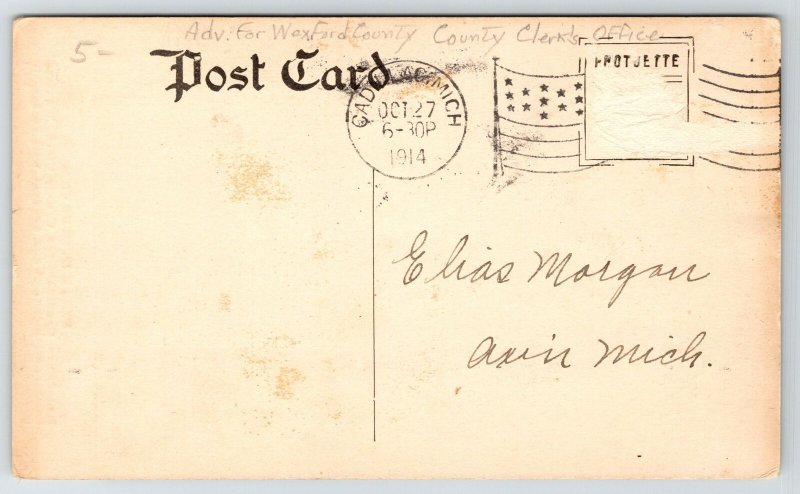 Adv. For Wexford County County Clerk's Office
5-
Post Card
CADILLAC, MICH
OCT 27
6-30P
1914
PHOTUETTE
Elias Morgan
Axin Mich.